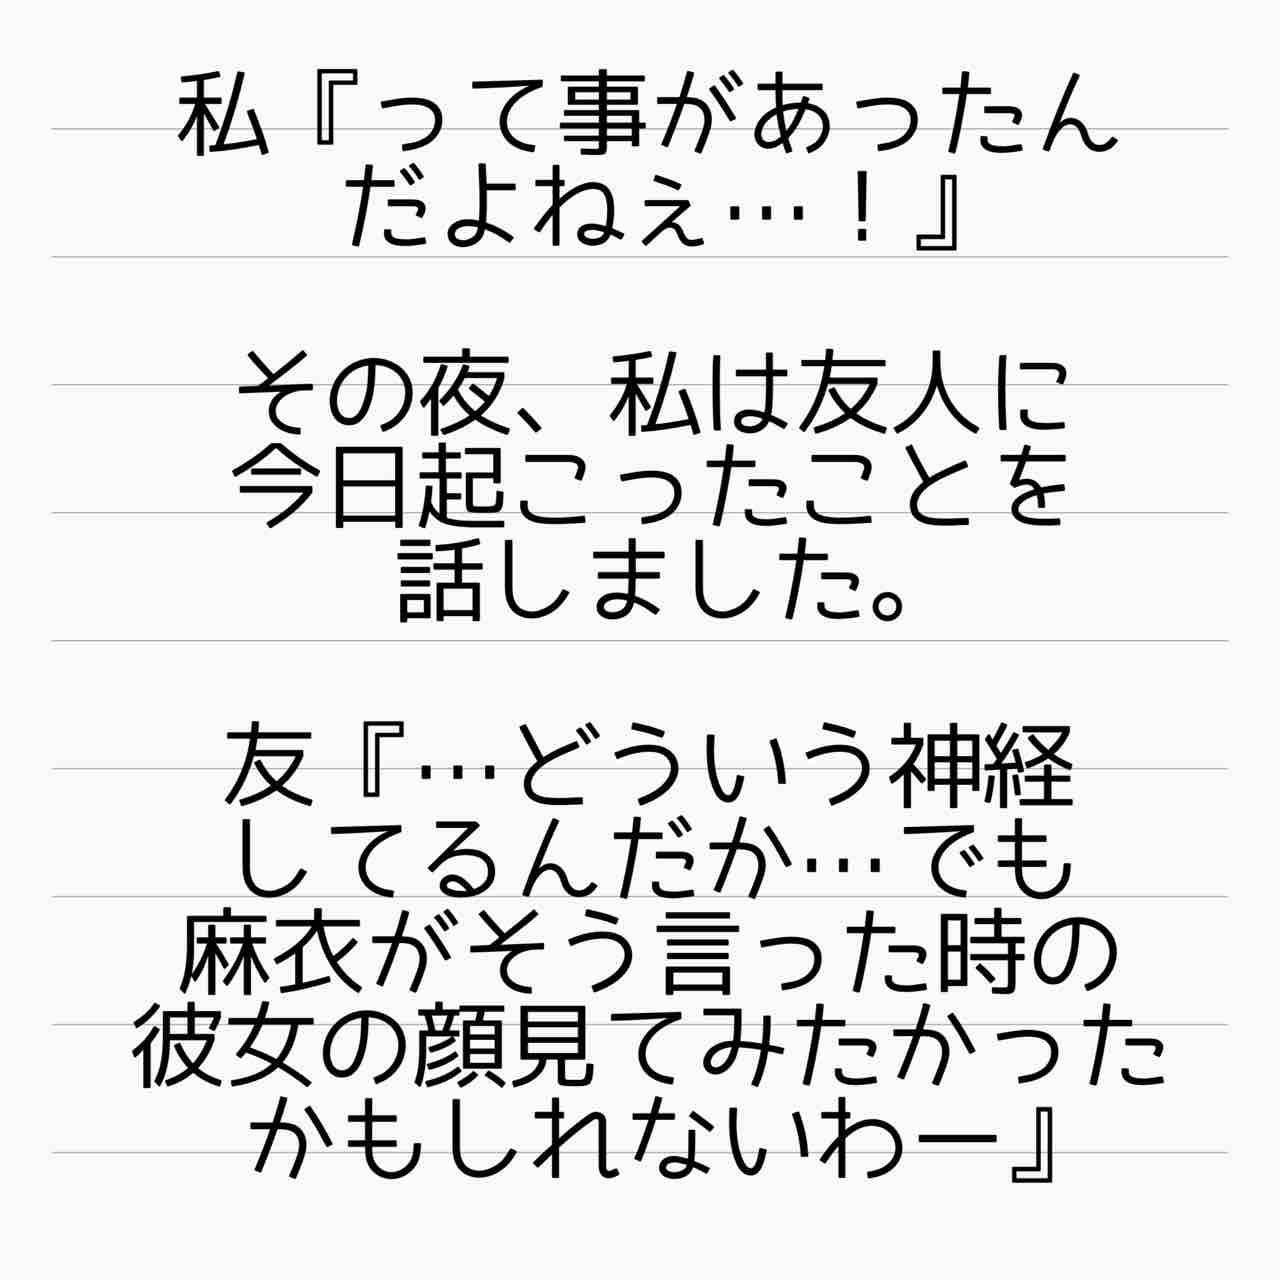 私『って事があったん
だよねぇ…！』
その夜、私は友人に
今日起こったことを
話しました。
友『…どういう神経
してるんだか…でも
麻衣がそう言った時の
彼女の顔見てみたかった
かもしれないわー』